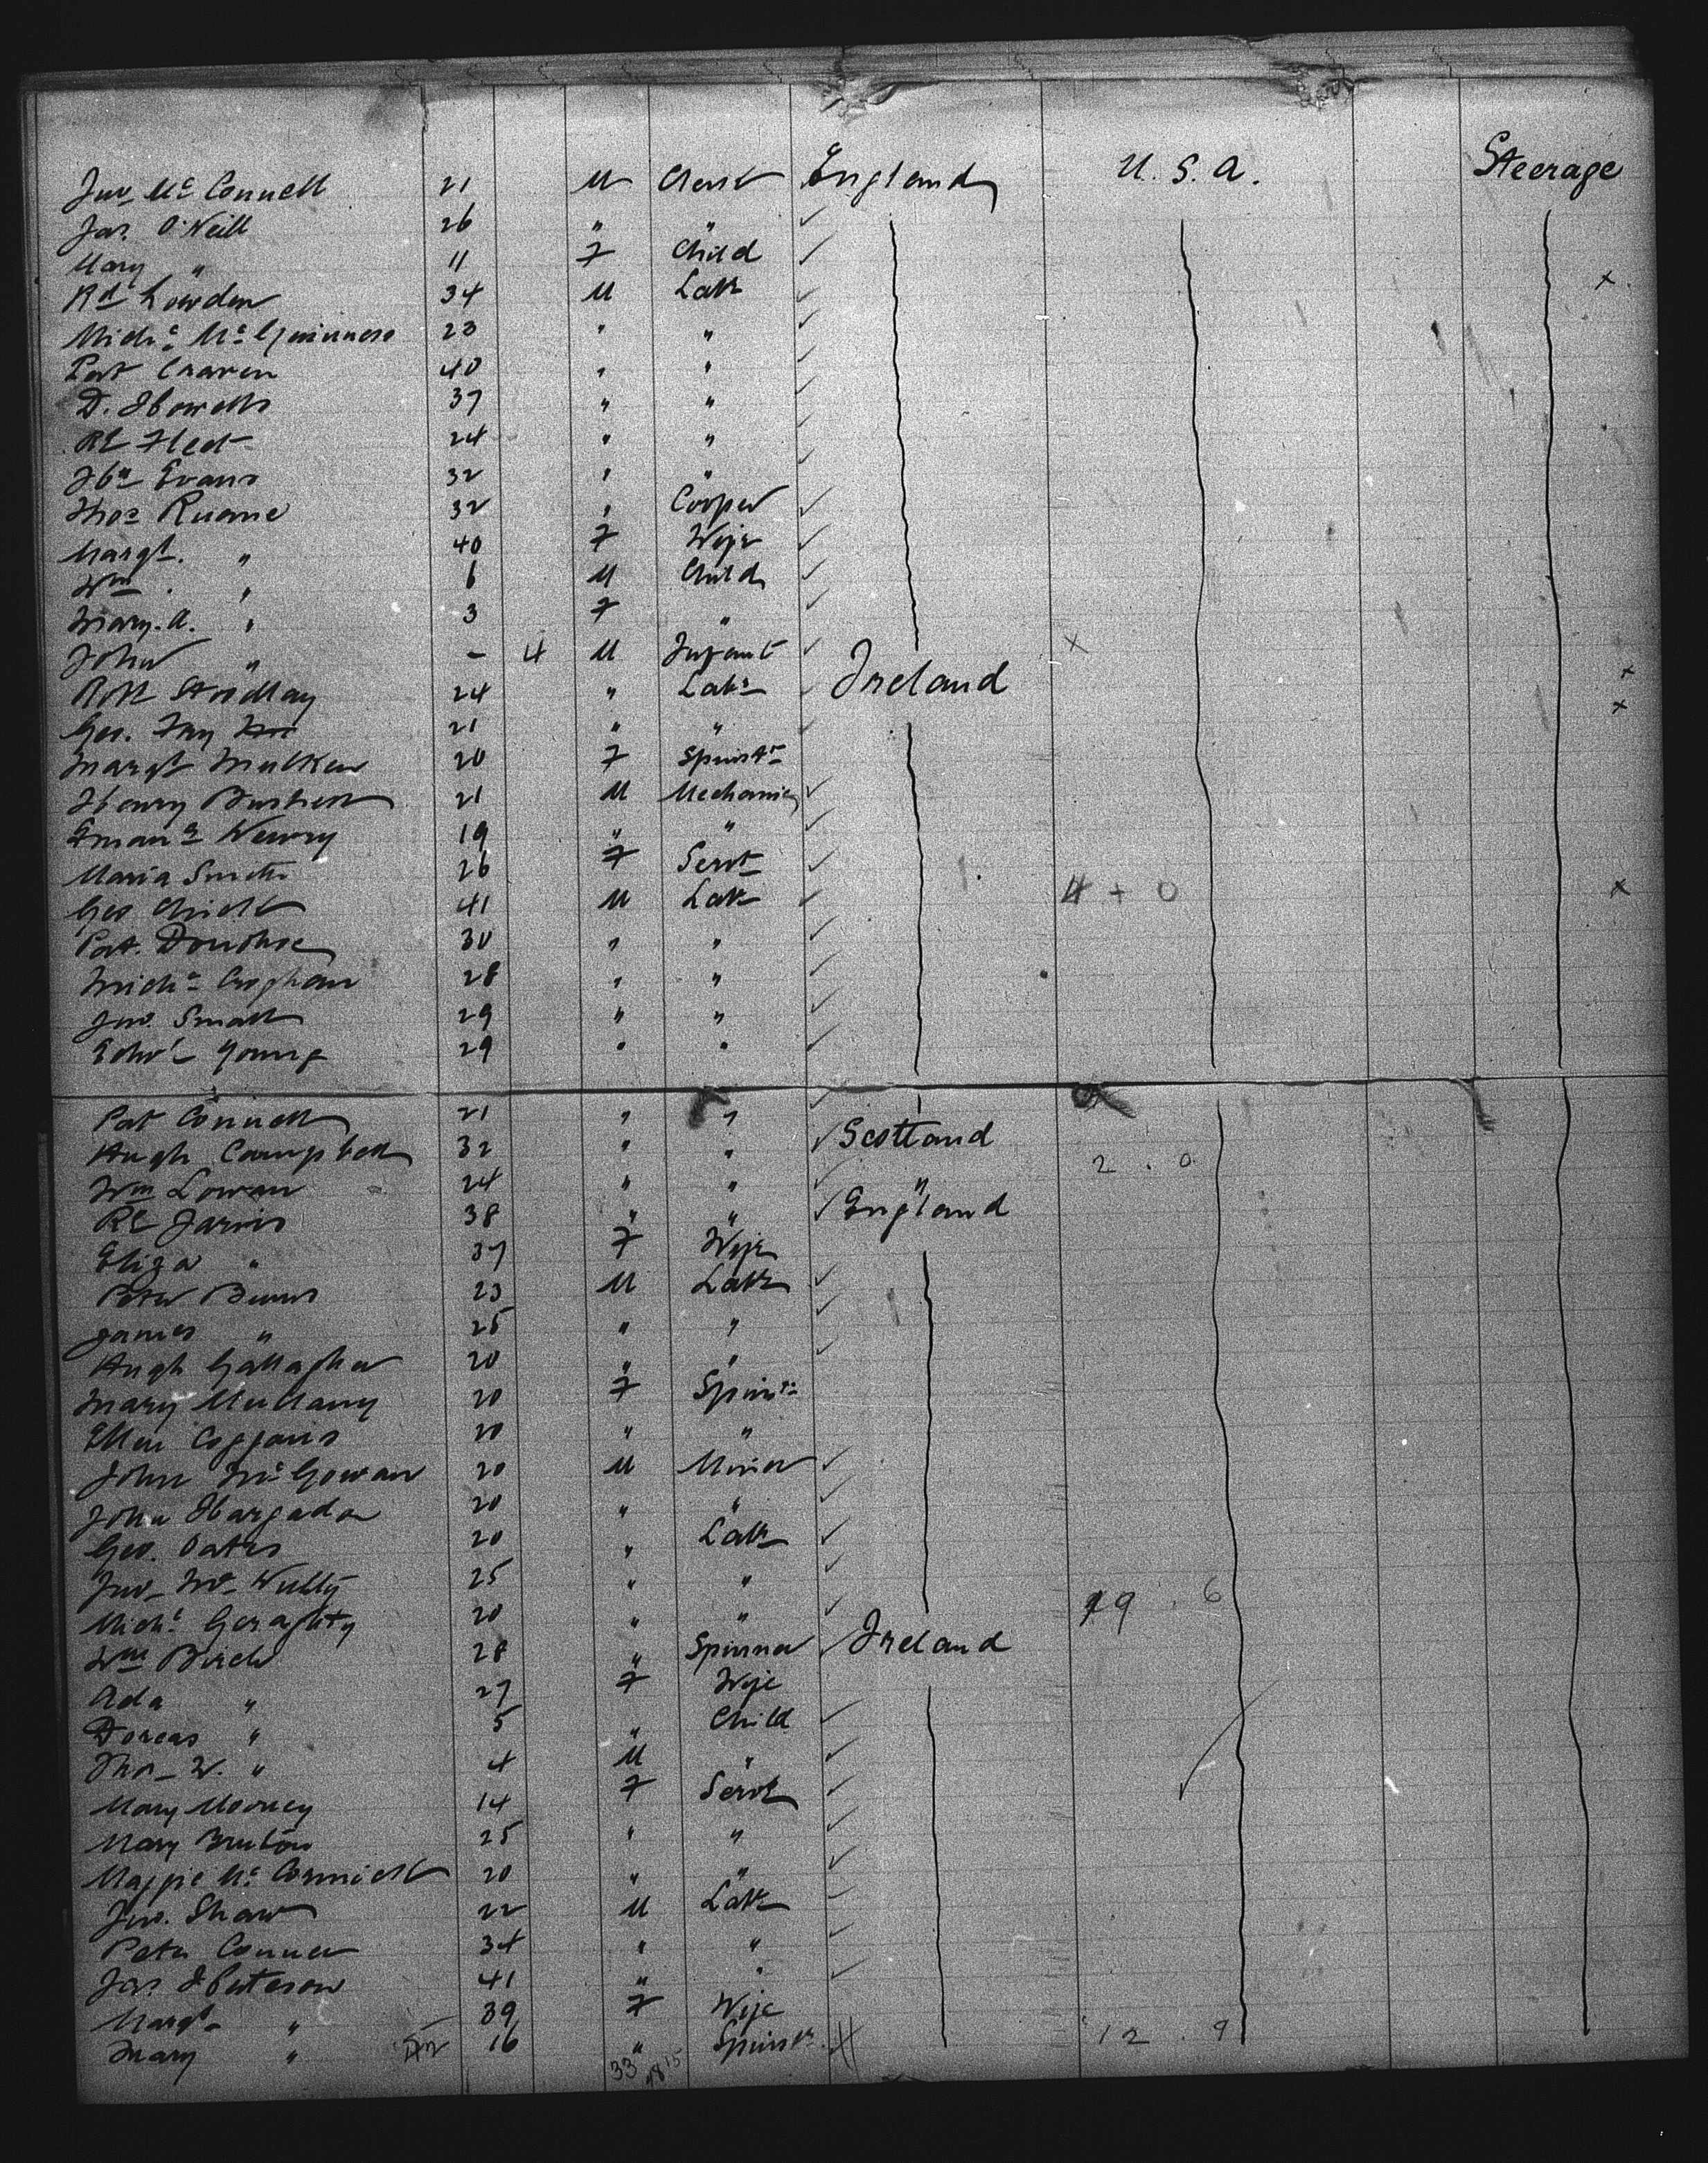 Jno Mc Connell 21 M Clerk England U.S.A. Steerage
Jas. O'Neill 26 " "
Mary " 11 F Child
Rd Lowden 34 M Labr x
Michl Mc Guinness 23 " "
Pat Craven 40 " "
D. Howells 37 " "
Rt Fleet 24 " "
Hh Evans 32 " "
Thos Ruane 32 " Cooper
Margt. " 40 F Wife
Wm. " 6 M Child
Mary. A. " 3 F "
John " - 4 M Infant x
Robt 24 " Labr Ireland x
Geo. Fay 21 " " x
Margt Mulken 20 F Spinstr
Henry 21 M Mechanic
Newry 19 " "
Maria Smith 26 F Servt
Geo 41 M Labr 4 + 0 x
Pat. Donohoe 30 " "
Michl 28 " "
Jno. Small 29 " "
Edwd Young 29 " "
Pat Connell 21 " "
Hugh Campbell 32 " " Scotland 2 . 0
Wm Lowan 24 " " "
Rt Jarvis 38 " " England
Eliza " 37 F Wife
Peter Burns 23 M Labr
James " 25 " "
Hugh Gallagher 20 " "
Mary Mullany 20 F Spinstr
Ellen Coggans 20 " "
John McGowan 20 M Miner
John Hargadon 20 " "
Geo. Oates 20 " Labr
Jno Mc Nulty 25 " "
Michl Geraghty 20 " " 19 . 6
Wm Birch 28 " Spinner Ireland
Ada " 27 F Wife
Dorcas " 5 " Child
Thos W. " 4 M "
Mary Mooney 14 F Servt
Mary Bruton 25 " "
Maggie Mc Cormick 20 " "
Jno. Shaw 22 M Labr
Peter Connor 34 " "
Jas 41 " "
Margt " 39 F Wife
Mary " 16 " Spinstr 12 . 9
33